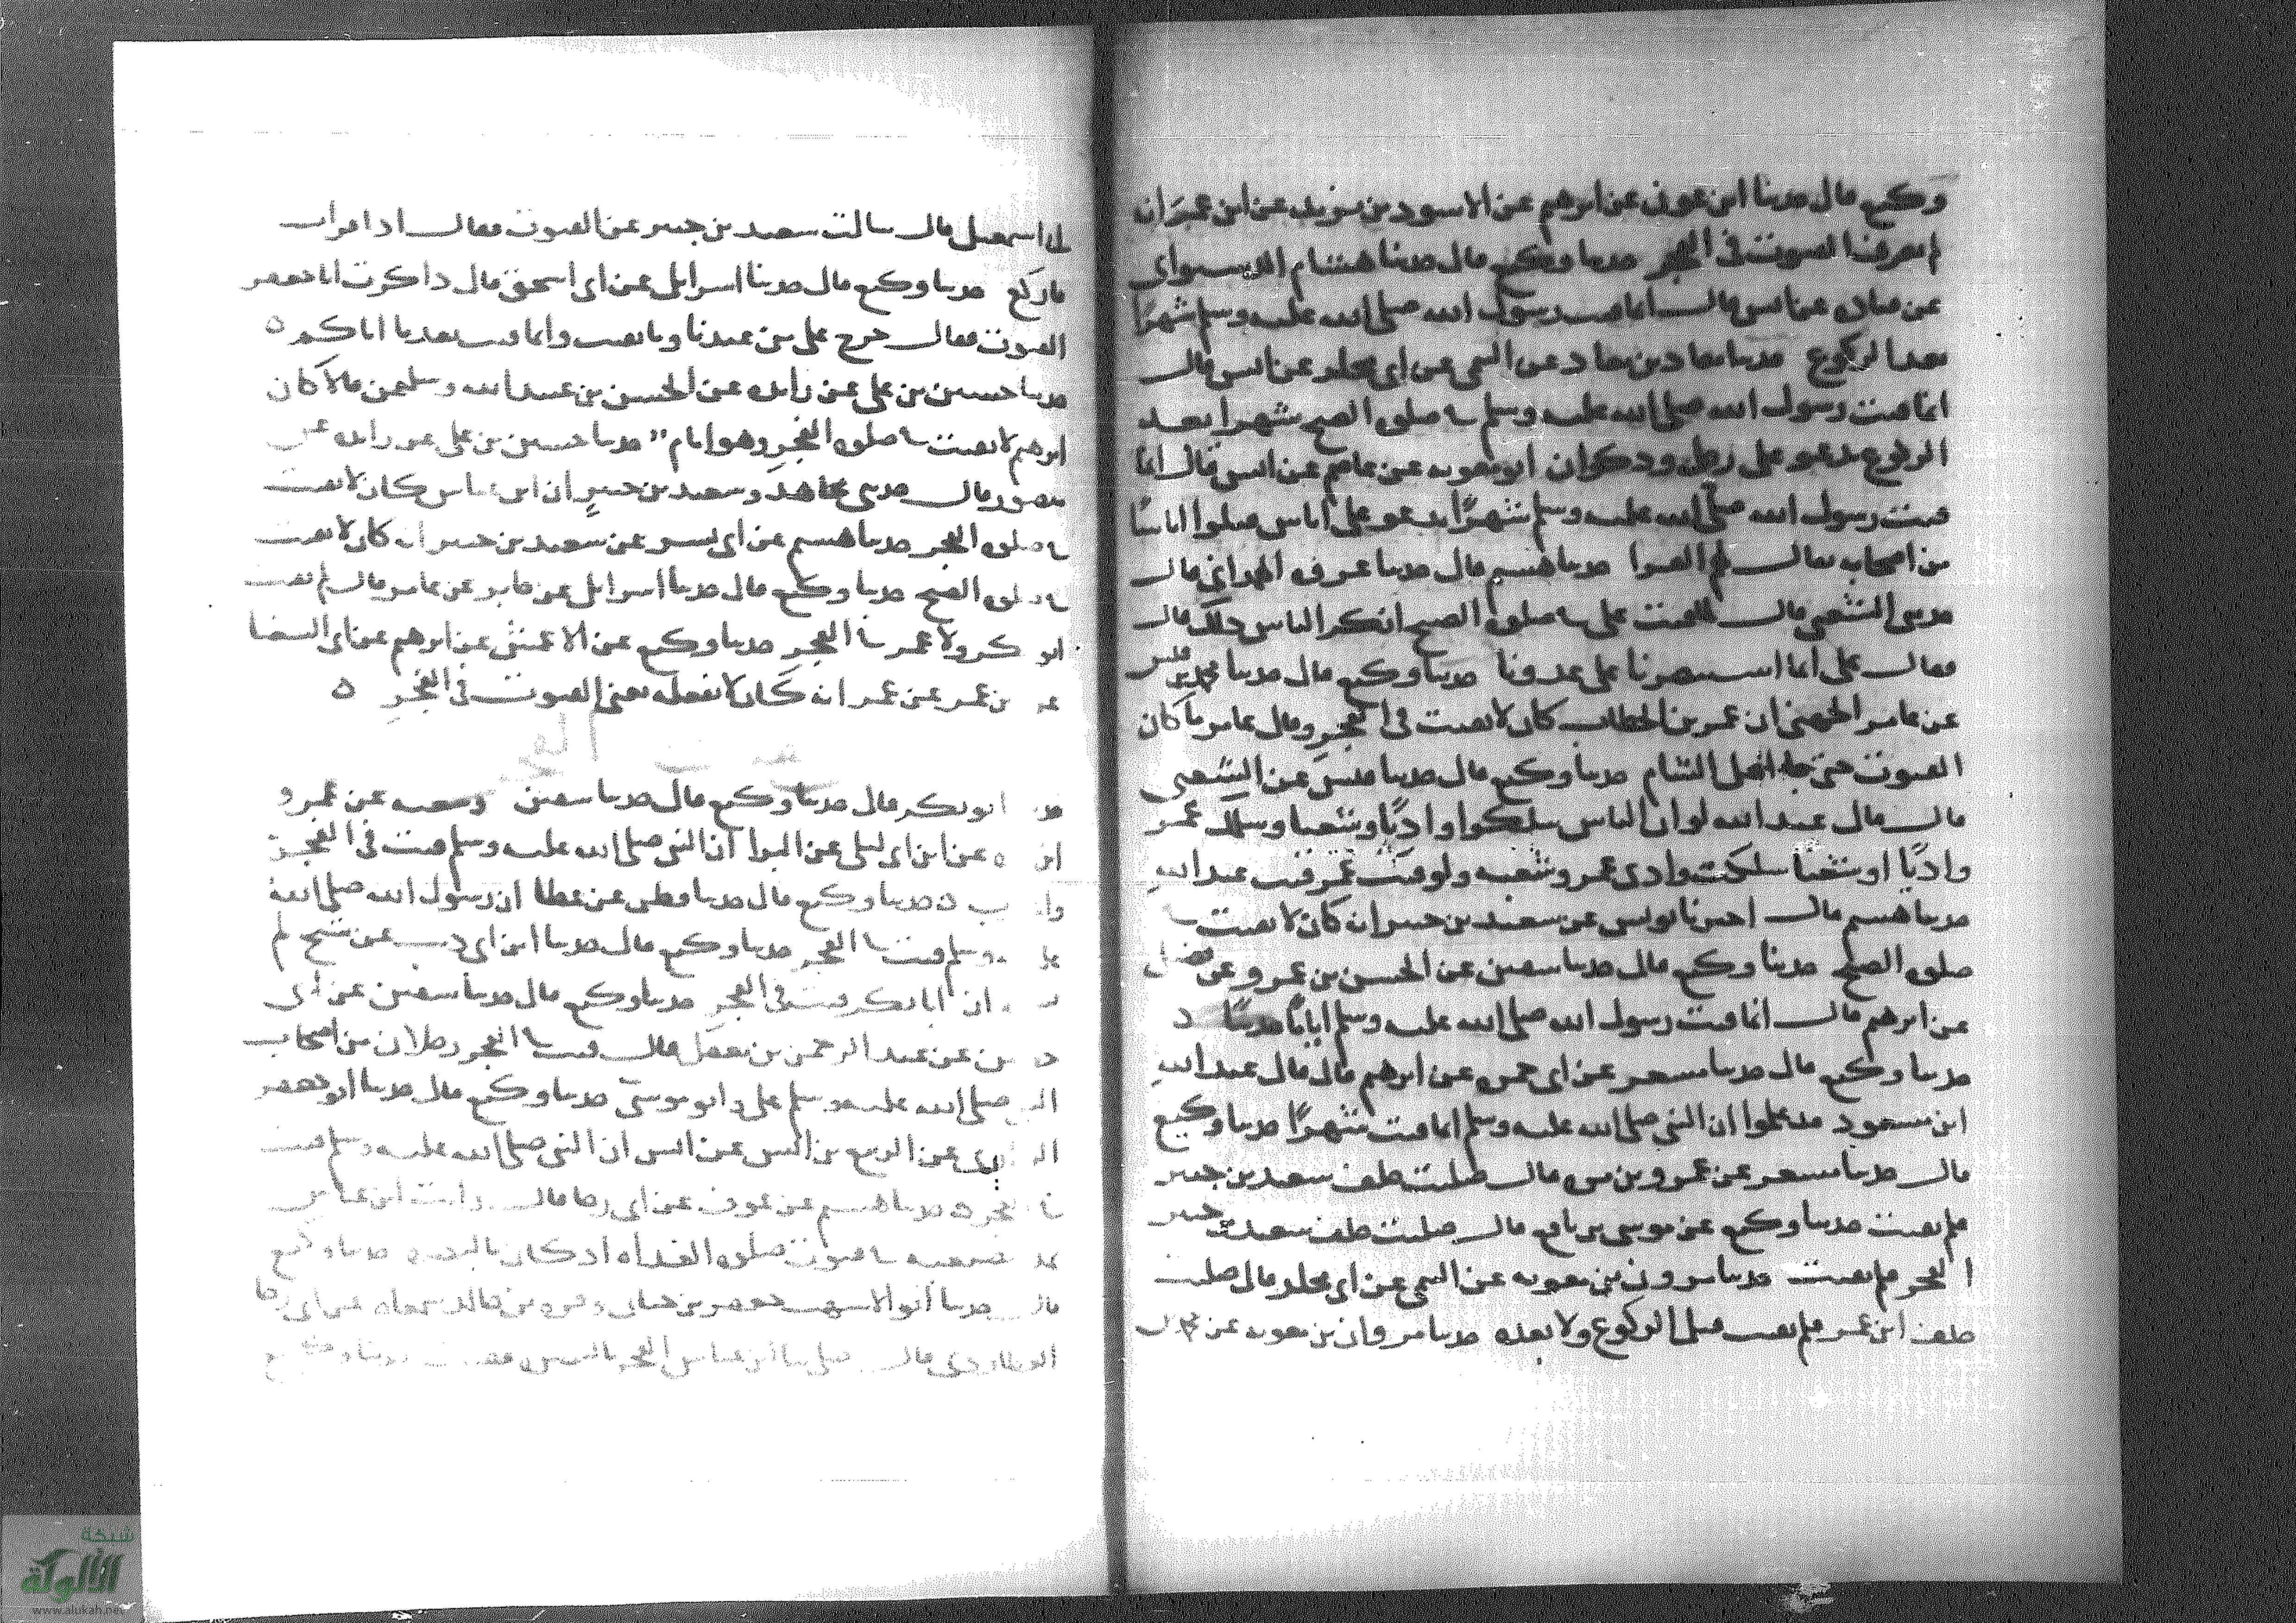 وكيع قال حدثنا ابن عون عن ابرهيم عن الاسود بن يزيد عن ابن عمر انه
لم يعرف القنوت في الفجر حدثنا وكيع قال حدثنا هشام الدستوائي
عن قتادة عن انس قال انما قنت رسول الله صلى الله عليه وسلم شهرًا
بعد الركوع حدثنا معاذ بن معاذ عن التيمي عن ابي مجلز عن انس قال
انما قنت رسول الله صلى الله عليه وسلم في صلوة الصبح شهرا بعد
الركوع يدعو على رعل وذكوان ابو معوية عن عاصم عن انس قال انما
قنت رسول الله صلى الله عليه وسلم شهرًا يدعو على اناس قتلوا اناسًا
من اصحابه يقال لهم القرا حدثنا هشيم قال حدثنا عروة الهمداني قال
حدثني الشعبي قال لما قنت علي في صلوة الصبح انكر الناس ذلك قال
فقال علي انما استنصرنا على عدونا حدثنا وكيع قال حدثنا محمد بن قيس
عن عامر الجهني ان عمر بن الخطاب كان لا يقنت في الفجر وقال عامر ما كان
القنوت حتى جا اهل الشام حدثنا وكيع قال حدثنا عن الشعبي
قال قال عبد الله لو ان الناس سلكوا واديًا وشعبا وسلك عمر
واديًا او شعبا سلكت وادي عمر وشعبه ولو قنت عمر قنت عبد الله
حدثنا هشيم قال اخبرنا يونس عن سعيد بن جبير انه كان لا يقنت في
صلوة الصبح حدثنا وكيع قال حدثنا سفين عن الحسن بن عمرو عن فضيل
عن ابرهيم قال انما قنت رسول الله صلى الله عليه وسلم ايامًا
حدثنا وكيع قال حدثنا مسعر عن ابي حمزة عن ابرهيم قال قال عبد الله
ابن مسعود قد علموا ان النبي صلى الله عليه وسلم انما قنت شهرًا حدثنا وكيع
قال حدثنا مسعر عن عمرو بن مرة قال صليت خلف سعيد بن جبير
فلم يقنت حدثنا وكيع عن موسى بن نافع قال صليت خلف سعيد بن جبير
الفجر فلم يقنت حدثنا مرون بن معوية عن التيمي عن ابي مجلز قال صليت
خلف ابن عمر فلم يقنت قبل الركوع ولا بعده حدثنا مروان بن معوية عن محمد بن
ابي اسمعيل قال سالت سعيد بن جبير عن القنوت فقال اذا قرات
فاركع حدثنا وكيع قال حدثنا اسرايل عن ابي اسحق قال ذاكرت ابا جعفر
القنوت فقال خرج علي من عندنا وما يقنت وانما قنت بعد ما اتاكم ه
حدثنا حسين بن علي عن زايدة عن الحسن بن عبيد الله وسليمن قالا كان
ابرهيم لا يقنت في صلوة الفجر وهو امام حدثنا حسين بن علي عن زايدة عن
منصور قال حدثني مجاهد وسعيد بن جبير ان ابن عباس كان لا يقنت
في صلوة الفجر حدثنا هشيم عن ابي بشر عن سعيد بن جبير انه كان لا يقنت
في صلوة الصبح حدثنا وكيع قال حدثنا اسرايل عن جابر عن عامر قال لم يقنت
ابو بكر ولا عمر في الفجر حدثنا وكيع عن الاعمش عن ابرهيم عن ابي الشعثا
عن بن عمر عن عمر انه كان لا يفعله يعني القنوت في الفجر ه
ابو بكر قال حدثنا وكيع قال حدثنا سفين وشعبة عن عمرو
ابن مرة عن ابن ابي ليلى عن البرا ان النبي صلى الله عليه وسلم قنت في الفجر
ه حدثنا وكيع قال حدثنا عن عطا ان رسول الله صلى الله
عليه وسلم قنت في الفجر حدثنا وكيع قال حدثنا ابن ابي ذيب عن شيخ لم
ان ابا بكر قنت في الفجر حدثنا وكيع قال حدثنا سفين عن ابي
حصين عن عبد الرحمن بن معقل قال قنت في الفجر رجلان من اصحاب
النبي صلى الله عليه وسلم علي وابو موسى حدثنا وكيع قال حدثنا ابو جعفر
الرازي عن الربيع بن انس عن انس ان النبي صلى الله عليه وسلم قنت
في الفجر حدثنا هشيم عن عوف عن ابي رجا قال رايت ابن عباس
يمد بضبعيه في قنوت صلوة الغداة اذ كان بالبصرة حدثنا وكيع
قال حدثنا ابو الاشهب جعفر بن حيان وقرة بن خالد عن ابي رجا
العطاردي قال صلى بنا ابن عباس الفجر بالبصرة فقنت حدثنا وكيع
شبكة
الألوكة
www.alukah.net